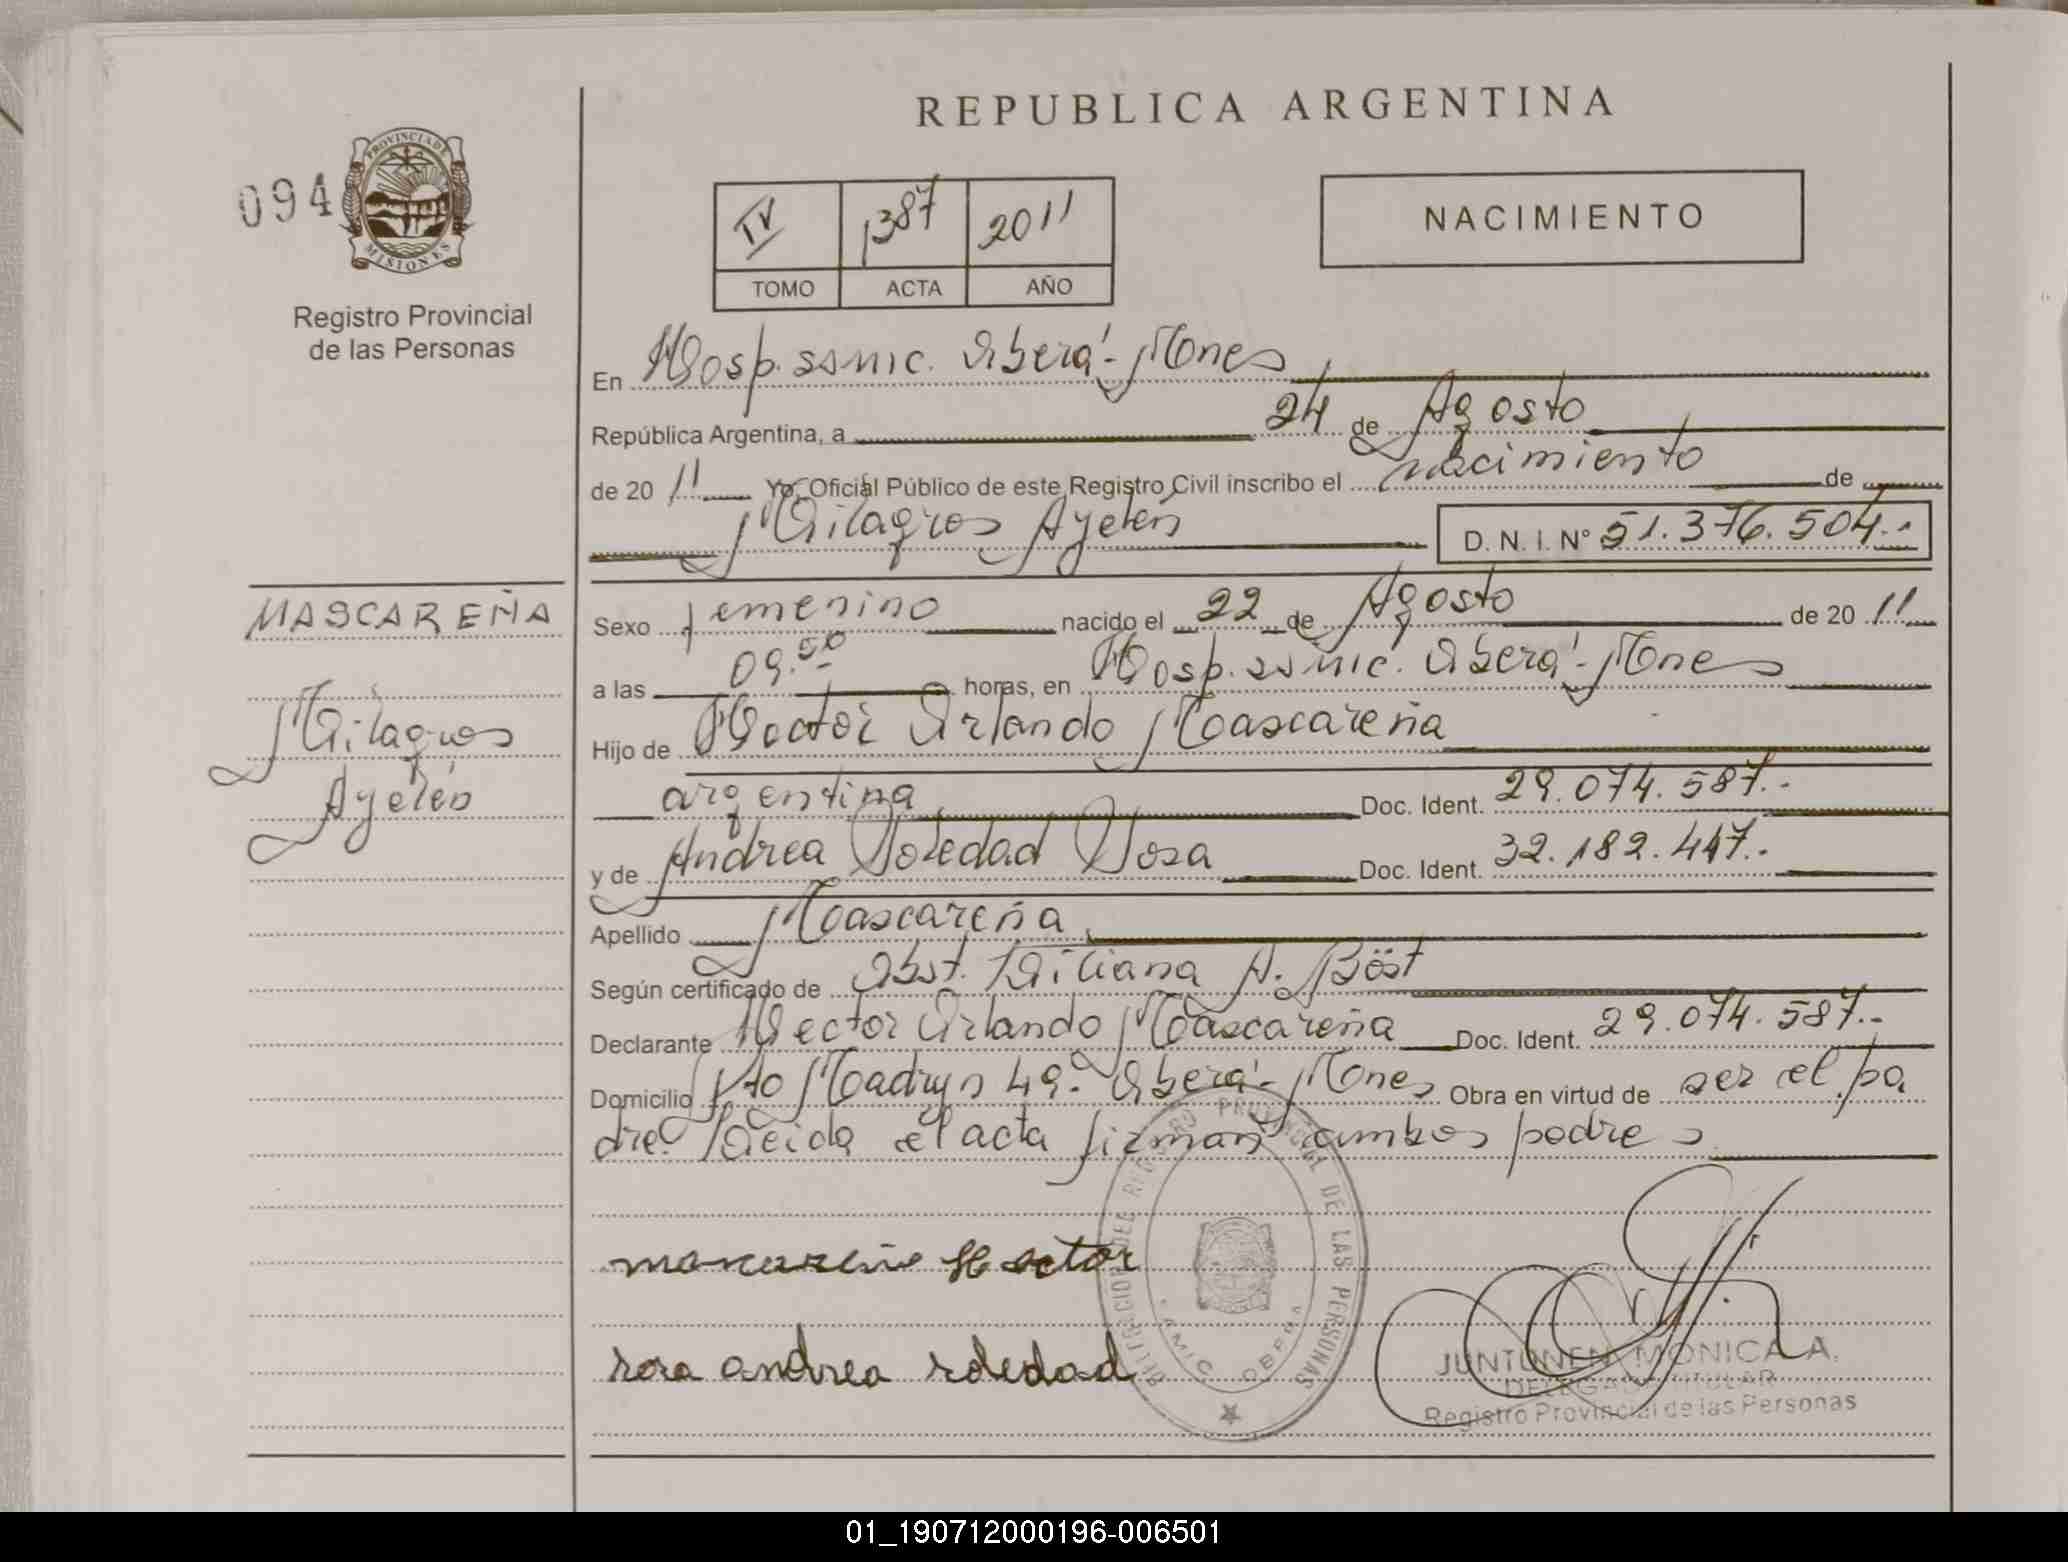 REPUBLICA ARGENTINA
094
PROVINCIA DE MISIONES
Registro Provincial
de las Personas
IV 1387 2011
TOMO ACTA AÑO
NACIMIENTO
En Hosp. SAMIC. Oberá - Mnes
República Argentina, a 24 de Agosto
de 20 11 Yo, Oficial Público de este Registro Civil inscribo el nacimiento de
Milagros Ayelén D. N. I. N° 51.376.504.-
MASCAREÑA
Milagros
Ayelén
Sexo femenino nacido el 22 de Agosto de 20 11
a las 09.50 horas, en Hosp. SAMIC. Oberá - Mnes
Hijo de Hector Orlando Mascareña
argentina Doc. Ident. 29.074.587.-
y de Andrea Soledad Sosa Doc. Ident. 32.182.447.-
Apellido Mascareña
Según certificado de Obst. Liliana A. Böst
Declarante Hector Orlando Mascareña Doc. Ident. 29.074.587.-
Domicilio Pto Madryn 49.- Oberá - Mnes Obra en virtud de ser el pa
dre. Leida el acta firman ambos padres
mascareño Hector
sosa andrea soledad
DELEGACION DEL REGISTRO PROVINCIAL DE LAS PERSONAS
SAMIC OBERA
JUNTUNEN MONICA A.
DELEGADA TITULAR
Registro Provincial de las Personas
01_190712000196-006501